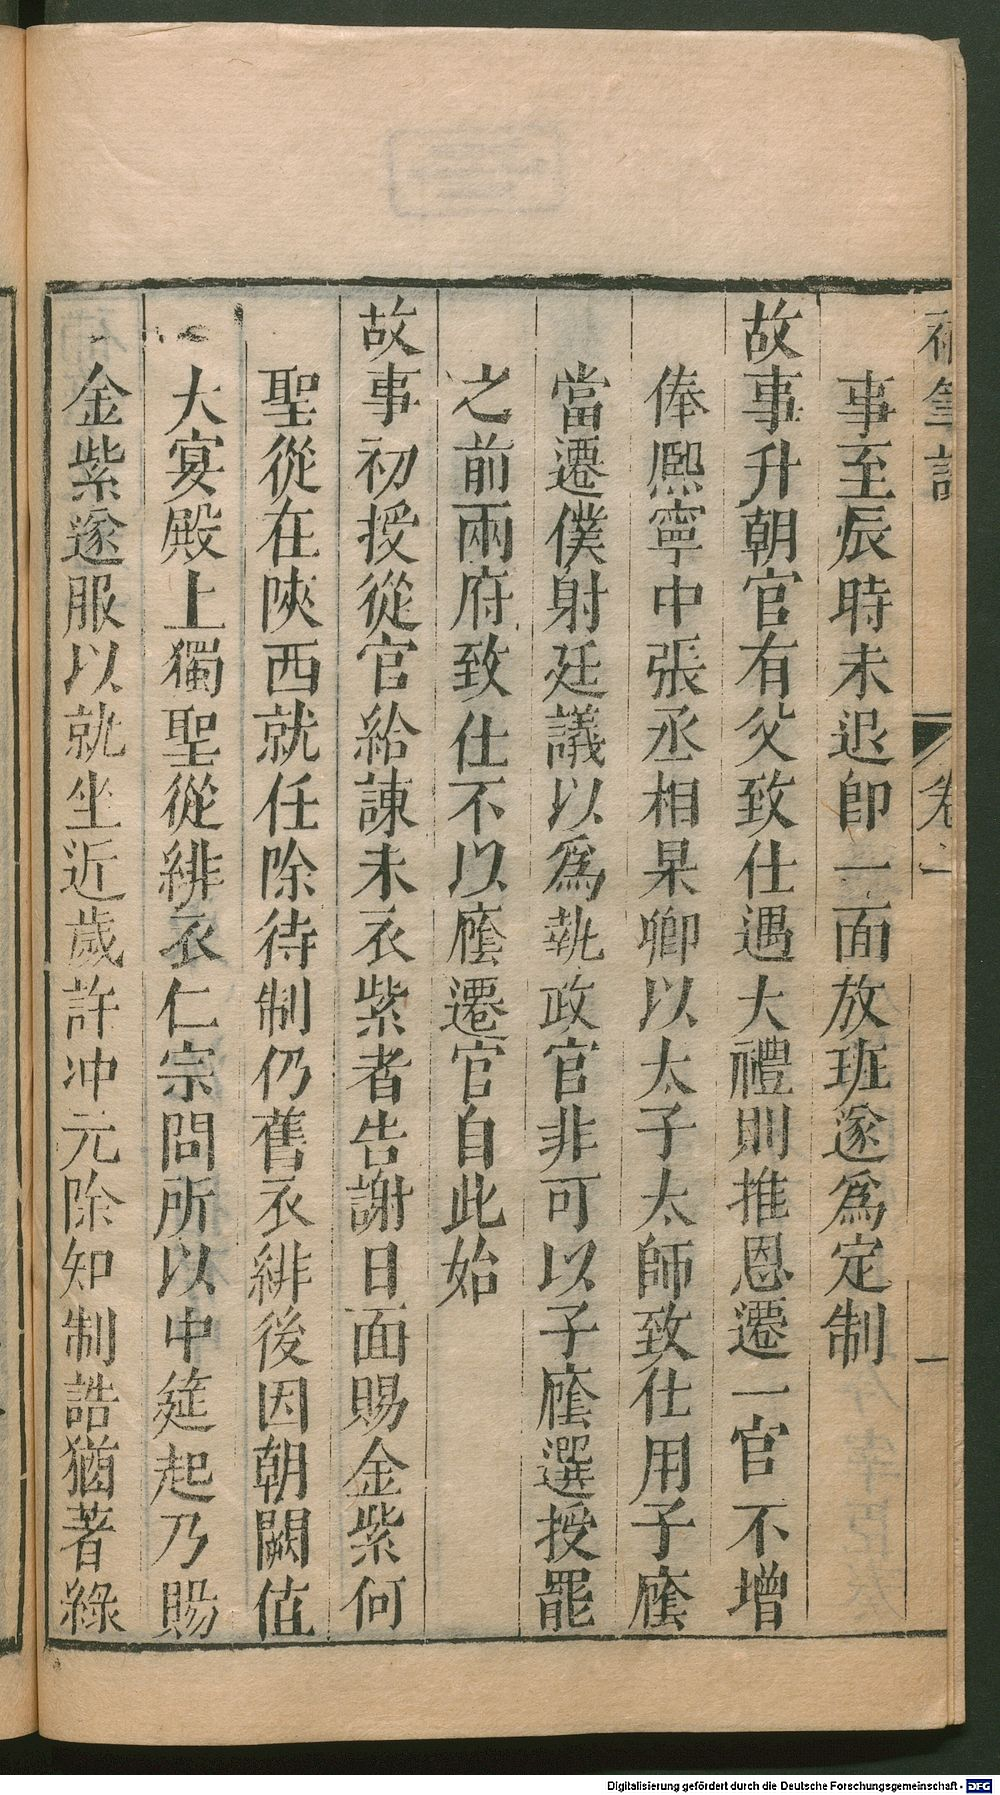 補筆談
卷一
一
事至辰時未退卽一面放班遂爲定制
故事升朝官有父致仕遇大禮則推恩遷一官不增
俸熙寧中張丞相杲卿以太子太師致仕用子廕
當遷僕射廷議以爲執政官非可以子廕選授罷
之前兩府致仕不以廕遷官自此始
故事初授從官給諫未衣紫者告謝日面賜金紫何
聖從在陝西就任除待制仍舊衣緋後因朝闕值
大宴殿上獨聖從緋衣仁宗問所以中筵起乃賜
金紫遂服以就坐近歲許沖元除知制誥猶著綠
Digitalisierung gefördert durch die Deutsche Forschungsgemeinschaft - DFG